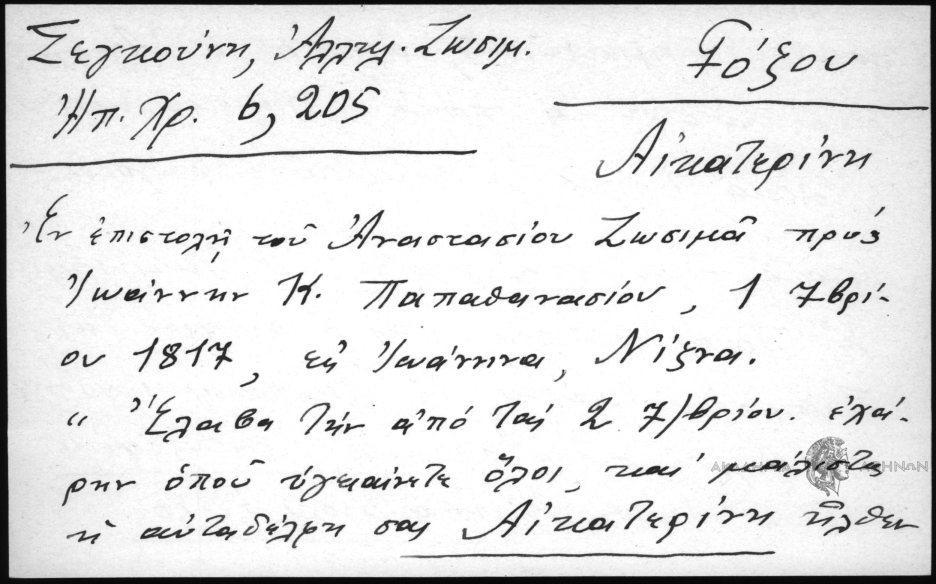 Σεγκούνη, Ἀλλη. Ζωσιμ.
Ἠπ. Χρ. 6, 205
Γόξου
Αἰκατερίνη
Ἐν ἐπιστολῇ τοῦ Ἀναστασίου Ζωσιμᾶ πρός
Ἰωάννην Κ. Παπαθανασίου, 1 7βρί-
ου 1817, εἰς Ἰωάννινα, Νίζνα.
“ Ἔλαβα τήν ἀπό τάς 2 7/βρίου. ἐχά-
ρην ὁποῦ ὑγειαίνετε ὅλοι, καί μάλιστα
ἡ αὐταδέλφη σας Αἰκατερίνη ἦλθεν